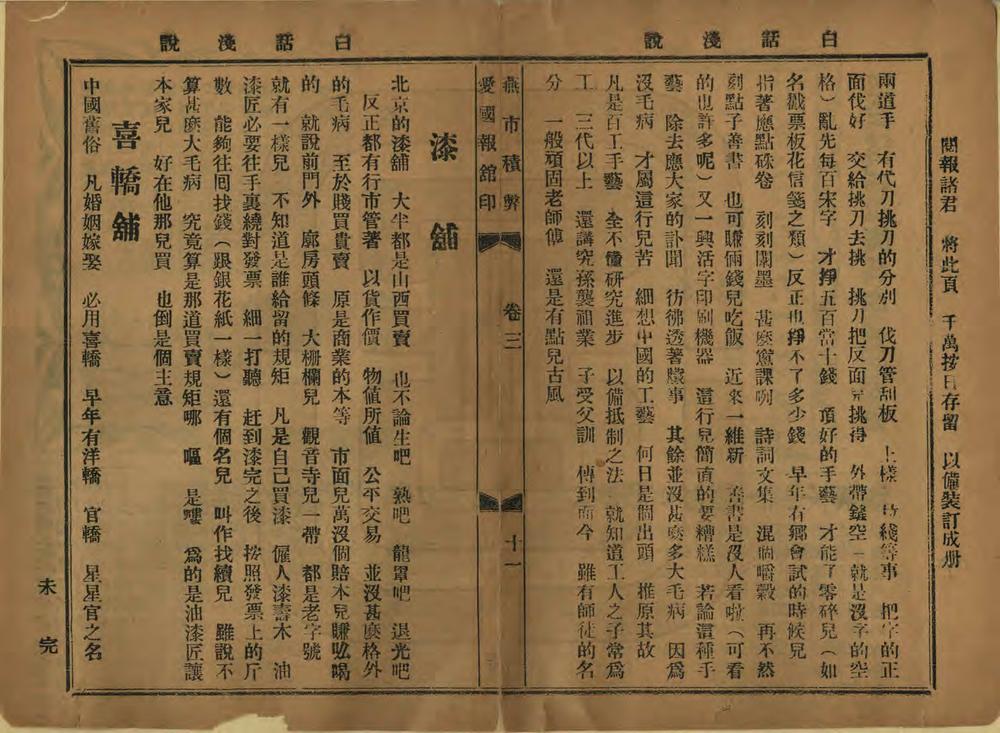 閱報諸君　將此頁　千萬按日存留　以備裝訂成册
白話淺說
兩道手　有代刀挑刀的分別　伐刀管刮板　上樣　拈綫等事　把字的正
面伐好　交給挑刀去挑　挑刀把反面兒挑得　外帶鏟空（就是沒字的空
格）亂先每百宋字　才掙五百當十錢　頂好的手藝　才能了零碎兒（如
名戳票板花信箋之類）反正也掙不了多少錢　早年有鄉會試的時候兒
指著應點硃卷　刻刻闈墨　甚麽窗課咧　詩詞文集　混個嚼穀　再不然
刻點子善書　也可賺倆錢兒吃飯　近來一維新　善書是沒人看啦（可看
的也許多呢）又一興活字印刷機器　這行兒簡直的要糟糕　若論這種手
藝　除去應大家的訃聞　彷彿透著賸事　其餘並沒甚麽多大毛病　因爲
沒毛病　才屬這行兒苦　細想中國的工藝　何日是個出頭　推原其故
凡是百工手藝　全不懂研究進步　以備抵制之法　就知道工人之子常爲
工　三代以上　還講究孫襲祖業　子受父訓　傳到而今　雖有師徒的名
分　一般頑固老師傅　還是有點兒古風
燕市積弊　卷三　十一
愛國報館印
白話淺說
漆舖
北京的漆舖　大半都是山西買賣　也不論生吧　熟吧　龍罩吧　退光吧
反正都有行市管著　以貨作價　物値所値　公平交易　並沒甚麽格外
的毛病　至於賤買貴賣　原是商業的本等　市面兒萬沒個賠本兒賺吆喝
的　就說前門外　廊房頭條　大栅欄兒　觀音寺兒一帶　都是老字號
就有一樣兒　不知道是誰給留的規矩　凡是自己買漆　僱人漆壽木　油
漆匠必要往手裏繞對發票　細一打聽　赶到漆完之後　按照發票上的斤
數　能夠往囘找錢（跟銀花紙一樣）還有個名兒　叫作找續兒　雖說不
算甚麽大毛病　究竟算是那道買賣規矩哪　嘔　是嘍　爲的是油漆匠讓
本家兒　好在他那兒買　也倒是個主意
喜轎舖
中國舊俗　凡婚姻嫁娶　必用喜轎　早年有洋轎　官轎　星星官之名
未完